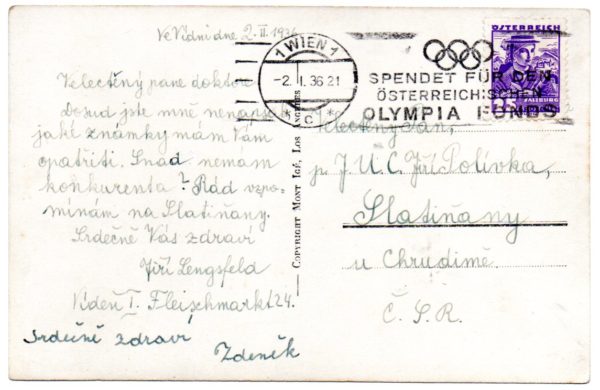 Ve Vídni dne 2.II.1936
Velectěný pane doktore
Dosud jste mně nenapsal
jaké známky mám Vám
opatřiti. Snad nemám
konkurenta? Rád vzpo-
mínám na Slatiňany.
Srdečně Vás zdraví
Jiří Lengsfeld
Vídeň I. Fleischmarkt 24.
Srdečně zdraví
Zdeněk
COPYRIGHT MONT IGÉ, LOS ANGELES
1 WIEN 1
-2. I. 36 21
* C *
SPENDET FÜR DEN
ÖSTERREICHISCHEN
OLYMPIA FONDS
ÖSTERREICH
SALZBURG
Velectěný Pan,
p. J.U.C. Jiří Polívka,
Slatiňany
u Chrudimě.
Č.S.R.